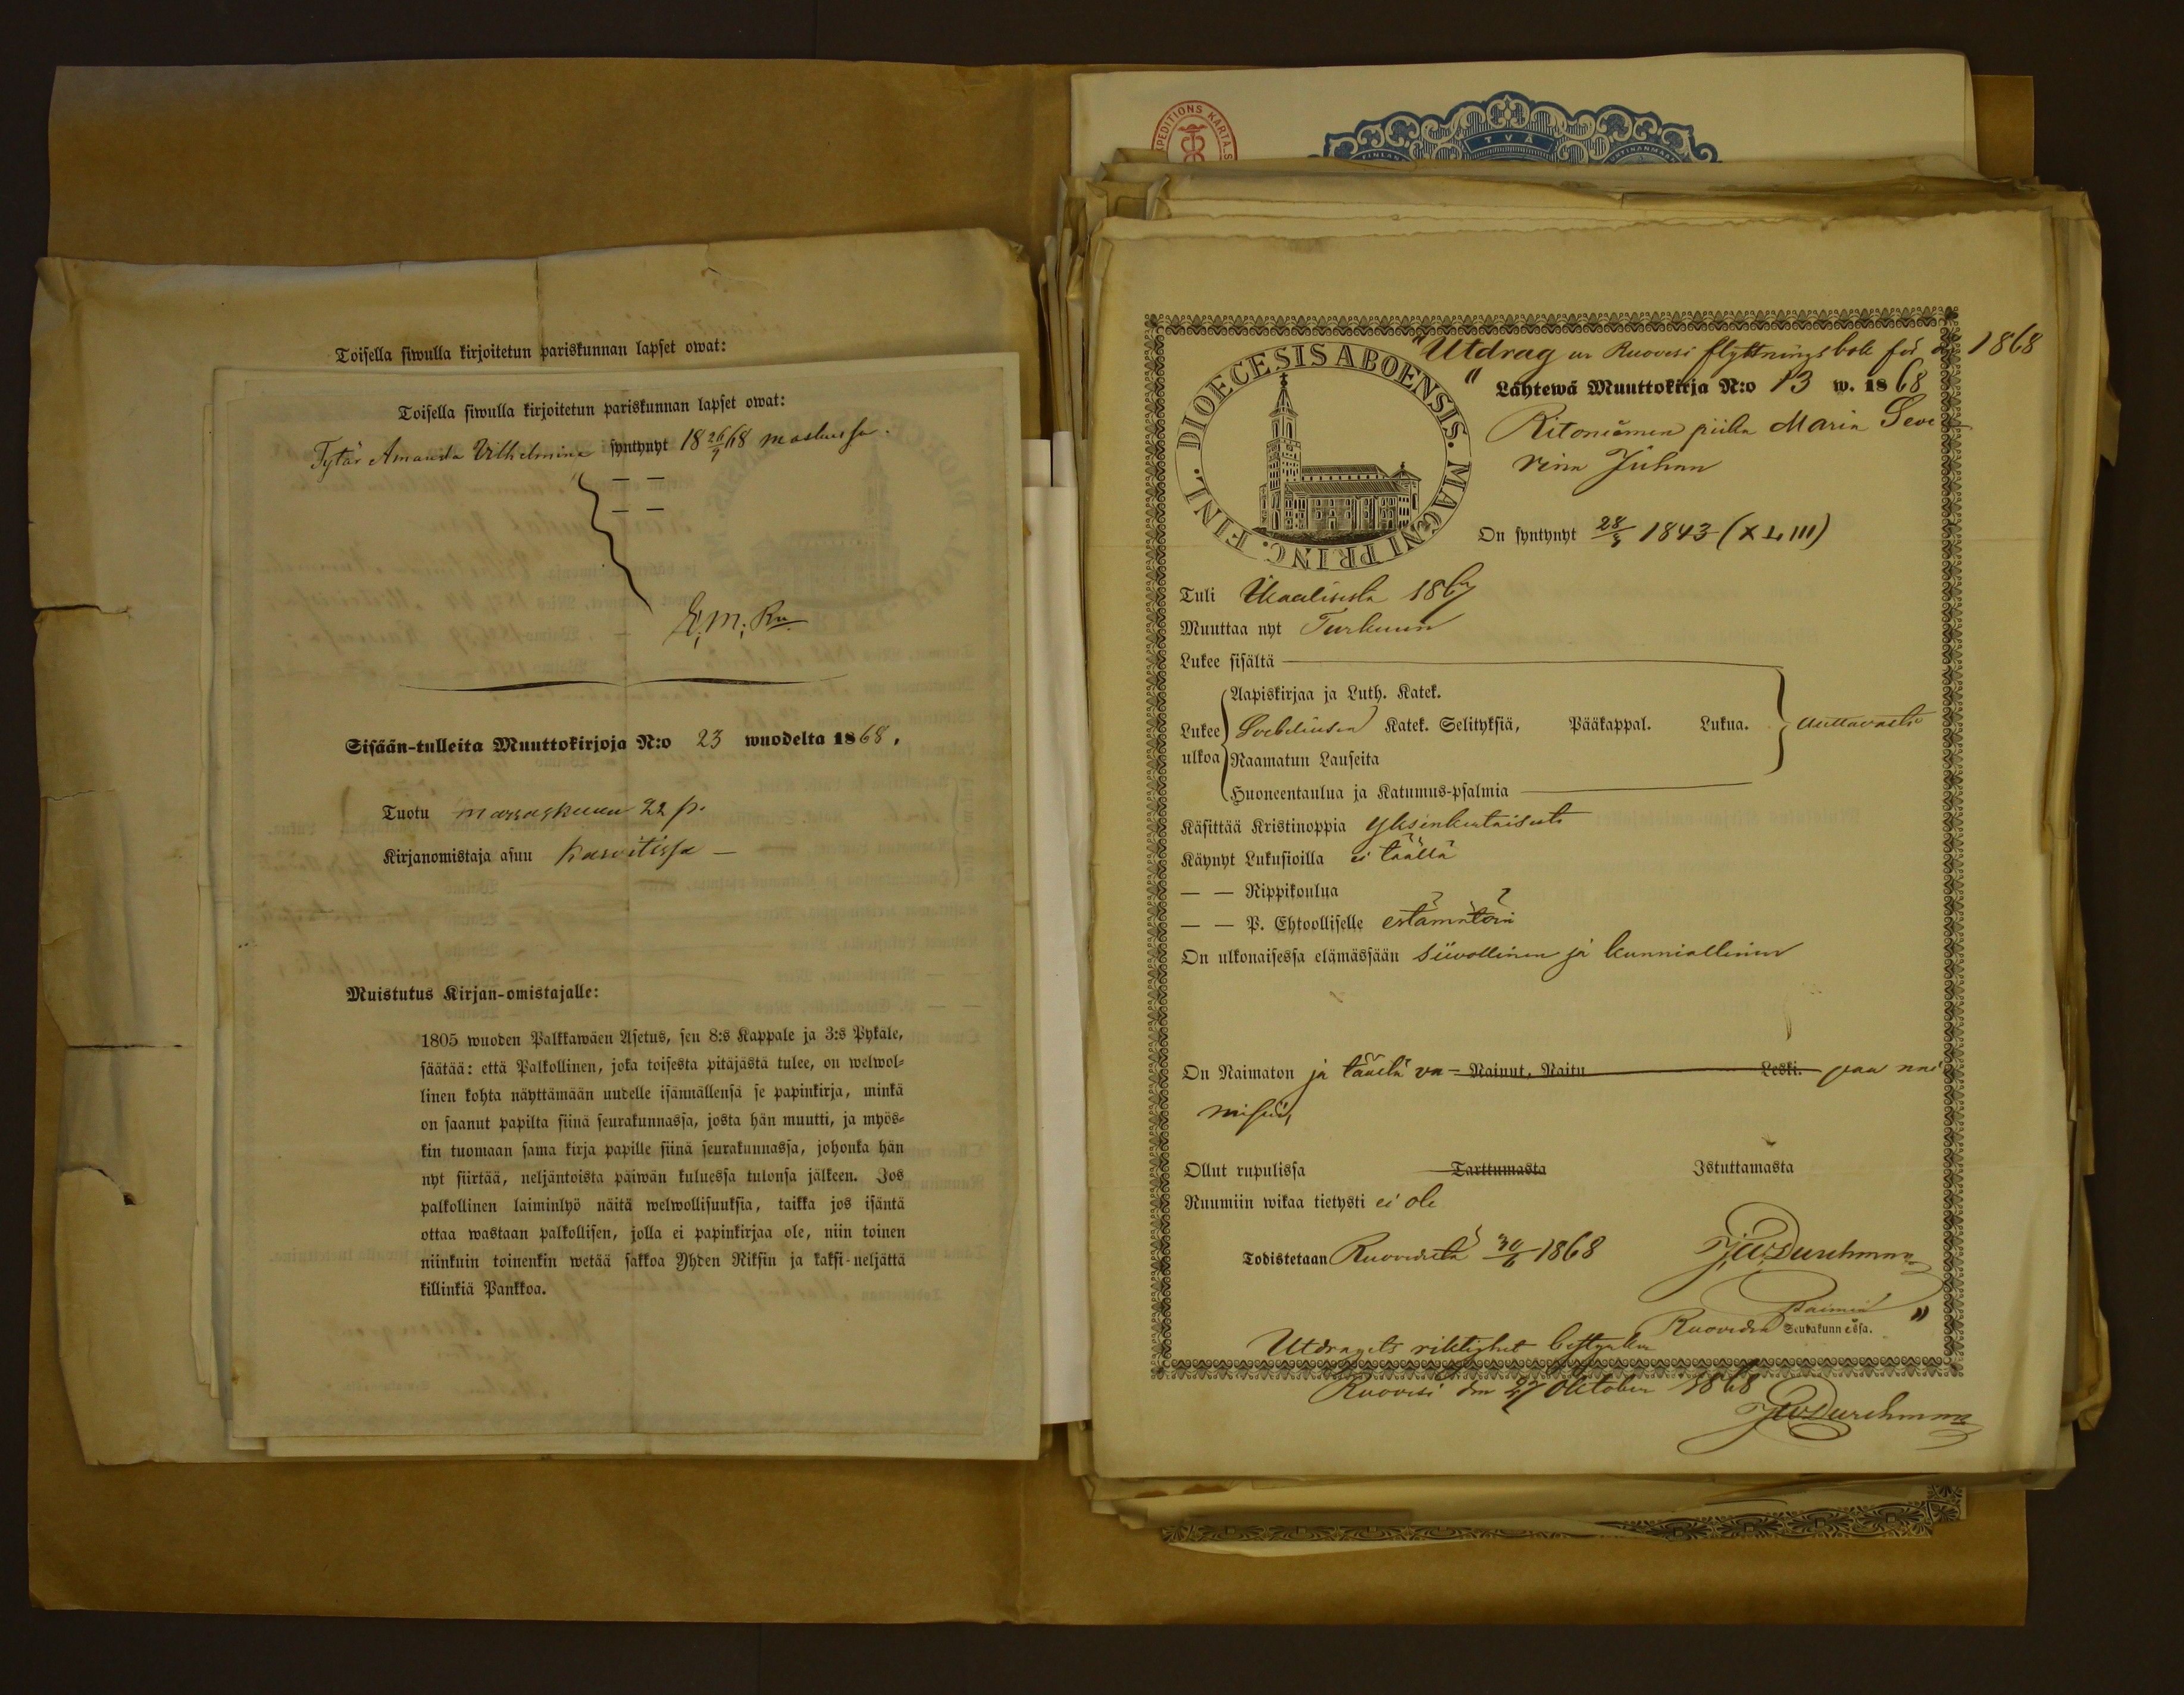 Toisella siwulla kirjoitetun pariskunnan lapset owat:
Toisella siwulla kirjoitetun pariskunnan lapset owat:
Tytär Amanda Vilhelmina syntynyt 18 26/9 68 maskussa.
— —
— —
Sisään-tulleita Muuttokirjoja N:o 23 wuodelta 1868.
Tuotu marraskuun 22 p.
Kirjanomistaja asuu
Muistutus Kirjan-omistajalle:
1805 wuoden Palkkawäen Asetus, sen 8:s Kappale ja 3:s Pykale,
säätää: että Palkollinen, joka toisesta pitäjästä tulee, on welwol-
linen kohta näyttämään uudelle isännällensä se papinkirja, minkä
on saanut papilta siinä seurakunnassa, josta hän muutti, ja myös-
kin tuomaan sama kirja papille siinä seurakunnassa, johonka hän
nyt siirtää, neljäntoista päiwän kuluessa tulonsa jälkeen. Jos
palkollinen laiminlyö näitä welwollisuuksia, taikka jos isäntä
ottaa wastaan palkollisen, jolla ei papinkirjaa ole, niin toinen
niinkuin toinenkin wetää sakkoa Yhden Riksin ja kaksi-neljättä
killinkiä Pankkoa.
PEDITIONS KARTA.S
TVÅ
"Utdrag ur Ruovesi flyttningsbok för år 1868
DIOECESIS ABOENSIS. MAGNI PRINC. FINL.
" Lähtewä Muuttokirja N:o 13 w. 1868
Ritoniemen piika Maria Seve
rina Juhan
On syntynyt 28/5 1843 (XLIII)
Tuli Ikaalisista 1867
Muuttaa nyt Turkuun
Lukee sisältä
Aapiskirjaa ja Luth. Katek.
Lukee ulkoa Katek. Selityksiä, Pääkappal. Lukua. auttavasti
Raamatun Lauseita
Huoneentaulua ja Katumus-psalmia
Käsittää Kristinoppia yksinkertaisesti
Käynyt Lukusioilla ei täällä
— — Rippikoulua
— — P. Ehtoolliselle estämätöin
On ulkonaisessa elämässään siivollinen ja kunniallinen
On Naimaton ja täältä va- Nainut, Naitu Leski. paa nai
misiin,
Ollut rupulissa Tarttumasta Istuttamasta
Ruumiin wikaa tietysti ei ole
Todistetaan Ruovedeltä 30/6 1868
Ruoveden Seurakunnassa. "
Utdragets riktighet bestyrker
Ruovesi den 27 Oktober 1868